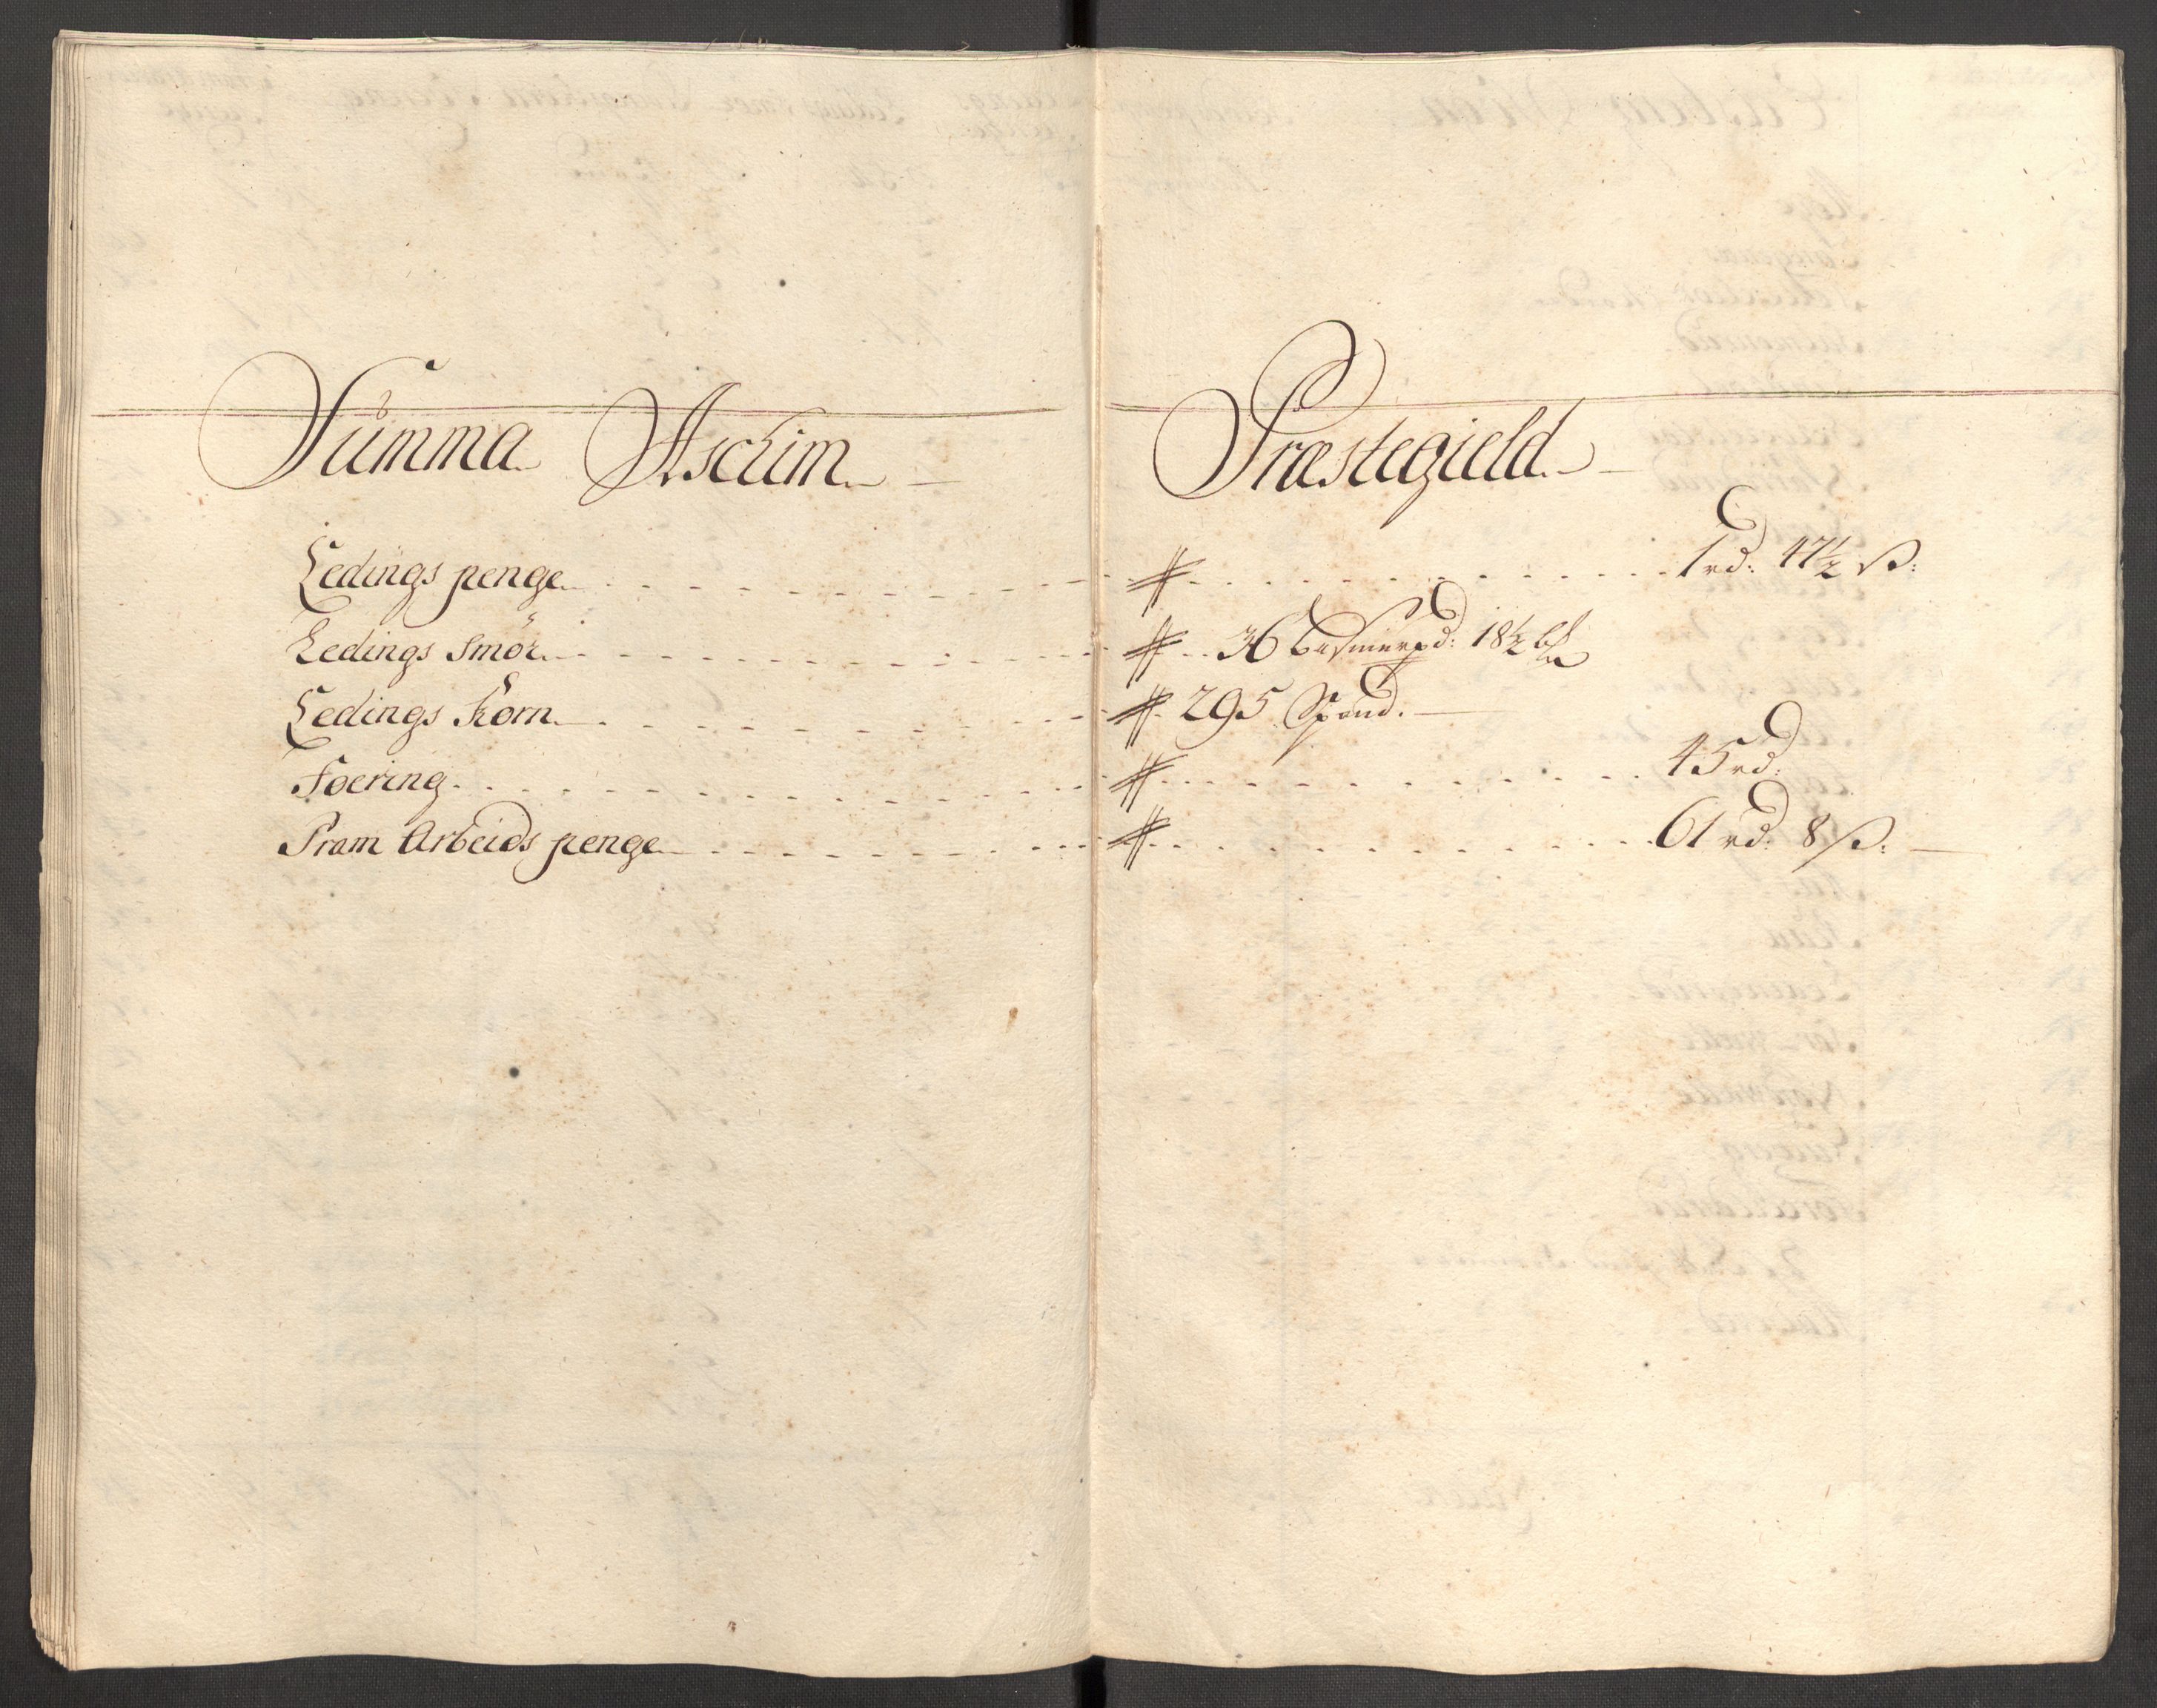 Summa Aschim Præstegield
Ledings penge # 1 rd: 47½ ß:
Ledings smör # 36 besmerpd: 18½
Ledings Korn # 295 Spand.
Foering # 45 rd:
Pram Arbeids penge # 61 rd: 8 ß: